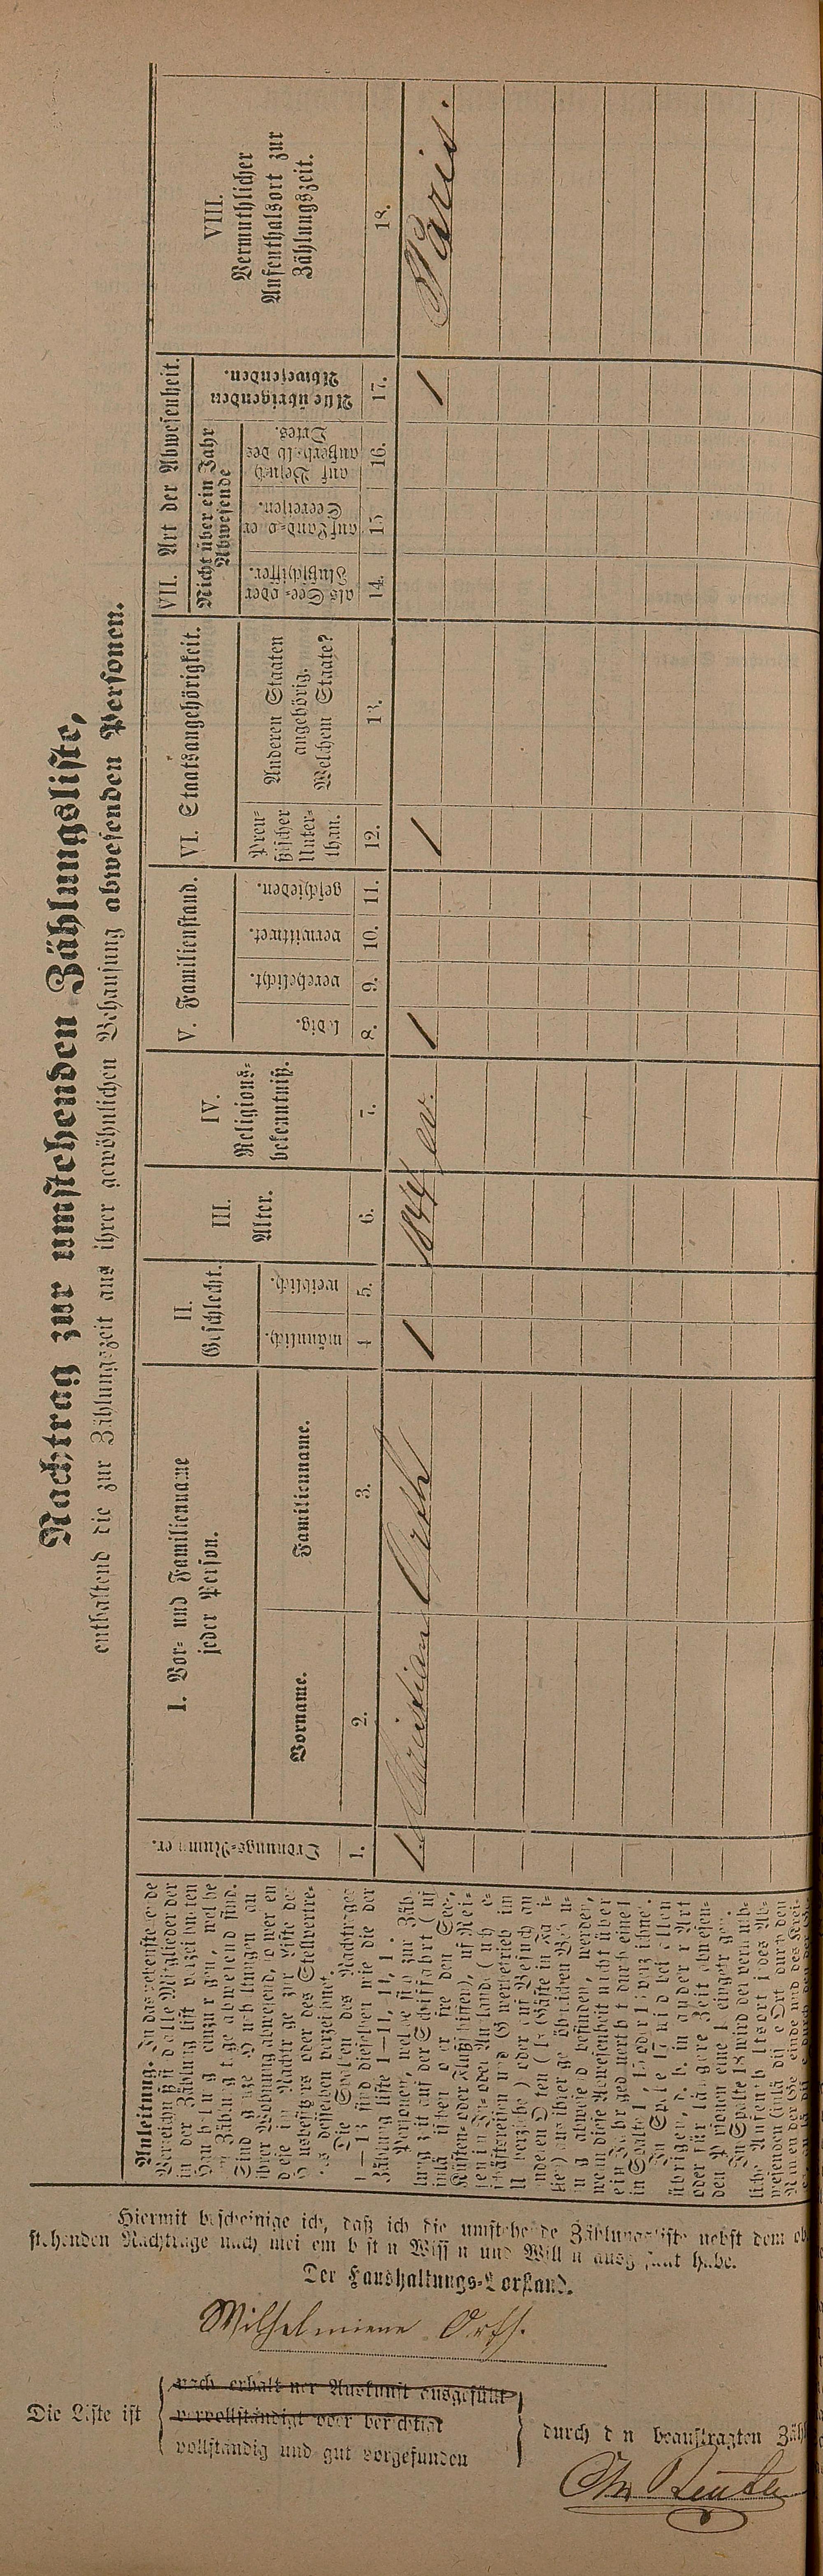 Nachtrag zur umstehenden Zählungsliste,
enthaltend die zur Zählungszeit aus ihrer gewöhnlichen Behausung abwesenden Personen.
Ordnungs-Nummer.
I. Vor- und Familienname
jeder Person.
Vorname.
Familienname.
II.
Geschlecht.
männlich.
weiblich.
III.
Alter.
IV.
Religions-
bekenntniß.
V. Familienstand.
ledig.
verehelicht.
verwittwet.
geschieden.
VI. Staatsangehörigkeit.
Preu-
ßischer
Unter-
than.
Anderen Staaten
angehörig.
Welchem Staate?
VII. Art der Abwesenheit.
Nicht über ein Jahr
Abwesende
als See- oder
Flußschiffer.
auf Land- oder
Seereisen.
auf Besuch
außerhalb des
Ortes.
Alle übrigen
Abwesenden.
VIII.
Vermuthlicher
Aufenthalsort zur
Zählungszeit.
1. 2. 3. 4 5. 6. 7. 8. 9. 10. 11. 12. 13. 14. 15 16. 17. 18.
1. Christian Orth 1 1844 ev. 1 1 1 Paris.
Anleitung. In das nebenstehende
Verzeichniß sind alle Mitglieder der
in der Zählungsliste verzeichneten
Haushaltung einzutragen, welche
am Zählungstage abwesend sind.
Sind ganze Haushaltungen aus
ihrer Wohnung abwesend, so werden
diese im Nachtrage zur Liste des
Hausbesitzers oder des Stellvertre-
ters desselben verzeichnet.
Die Spalten des Nachtrages
1—13 sind dieselben wie die der
Zählungsliste 1—11,
Personen, welche sich zur Zäh-
lungszeit auf der Schifffahrt (auf
inländischen oder fremden See-,
Küsten- oder Flußschiffen), auf Rei-
sen im In- oder Auslande
oder auf Besuch an
anderen Orten
aus ihrer gewöhnlichen Behausung
abwesend befinden, werden,
wenn diese Abwesenheit nicht über
ein Jahr gedauert hat durch eine 1
in Spalte 14, 15 oder 16 verzeichnet.
In Spalte 17 wird bei allen
übrigen, d. h. in anderer Art
oder für längere Zeit abwesen-
den Personen eine 1 eingetragen.
In Spalte 18 wird der vermuth-
liche Aufenthaltsort jedes Ab-
wesenden
Hiermit bescheinige ich, daß ich die umstehende Zählungsliste nebst dem
stehenden Nachtrage nach meinem besten Wissen und Willen ausgefüllt habe.
Der Haushaltungs-Vorstand.
Wilhelmiene Orth.
Die Liste ist
nach erhaltener Auskunft ausgefüllt
vervollständigt oder berichtigt
vollständig und gut vorgefunden
durch den beauftragten